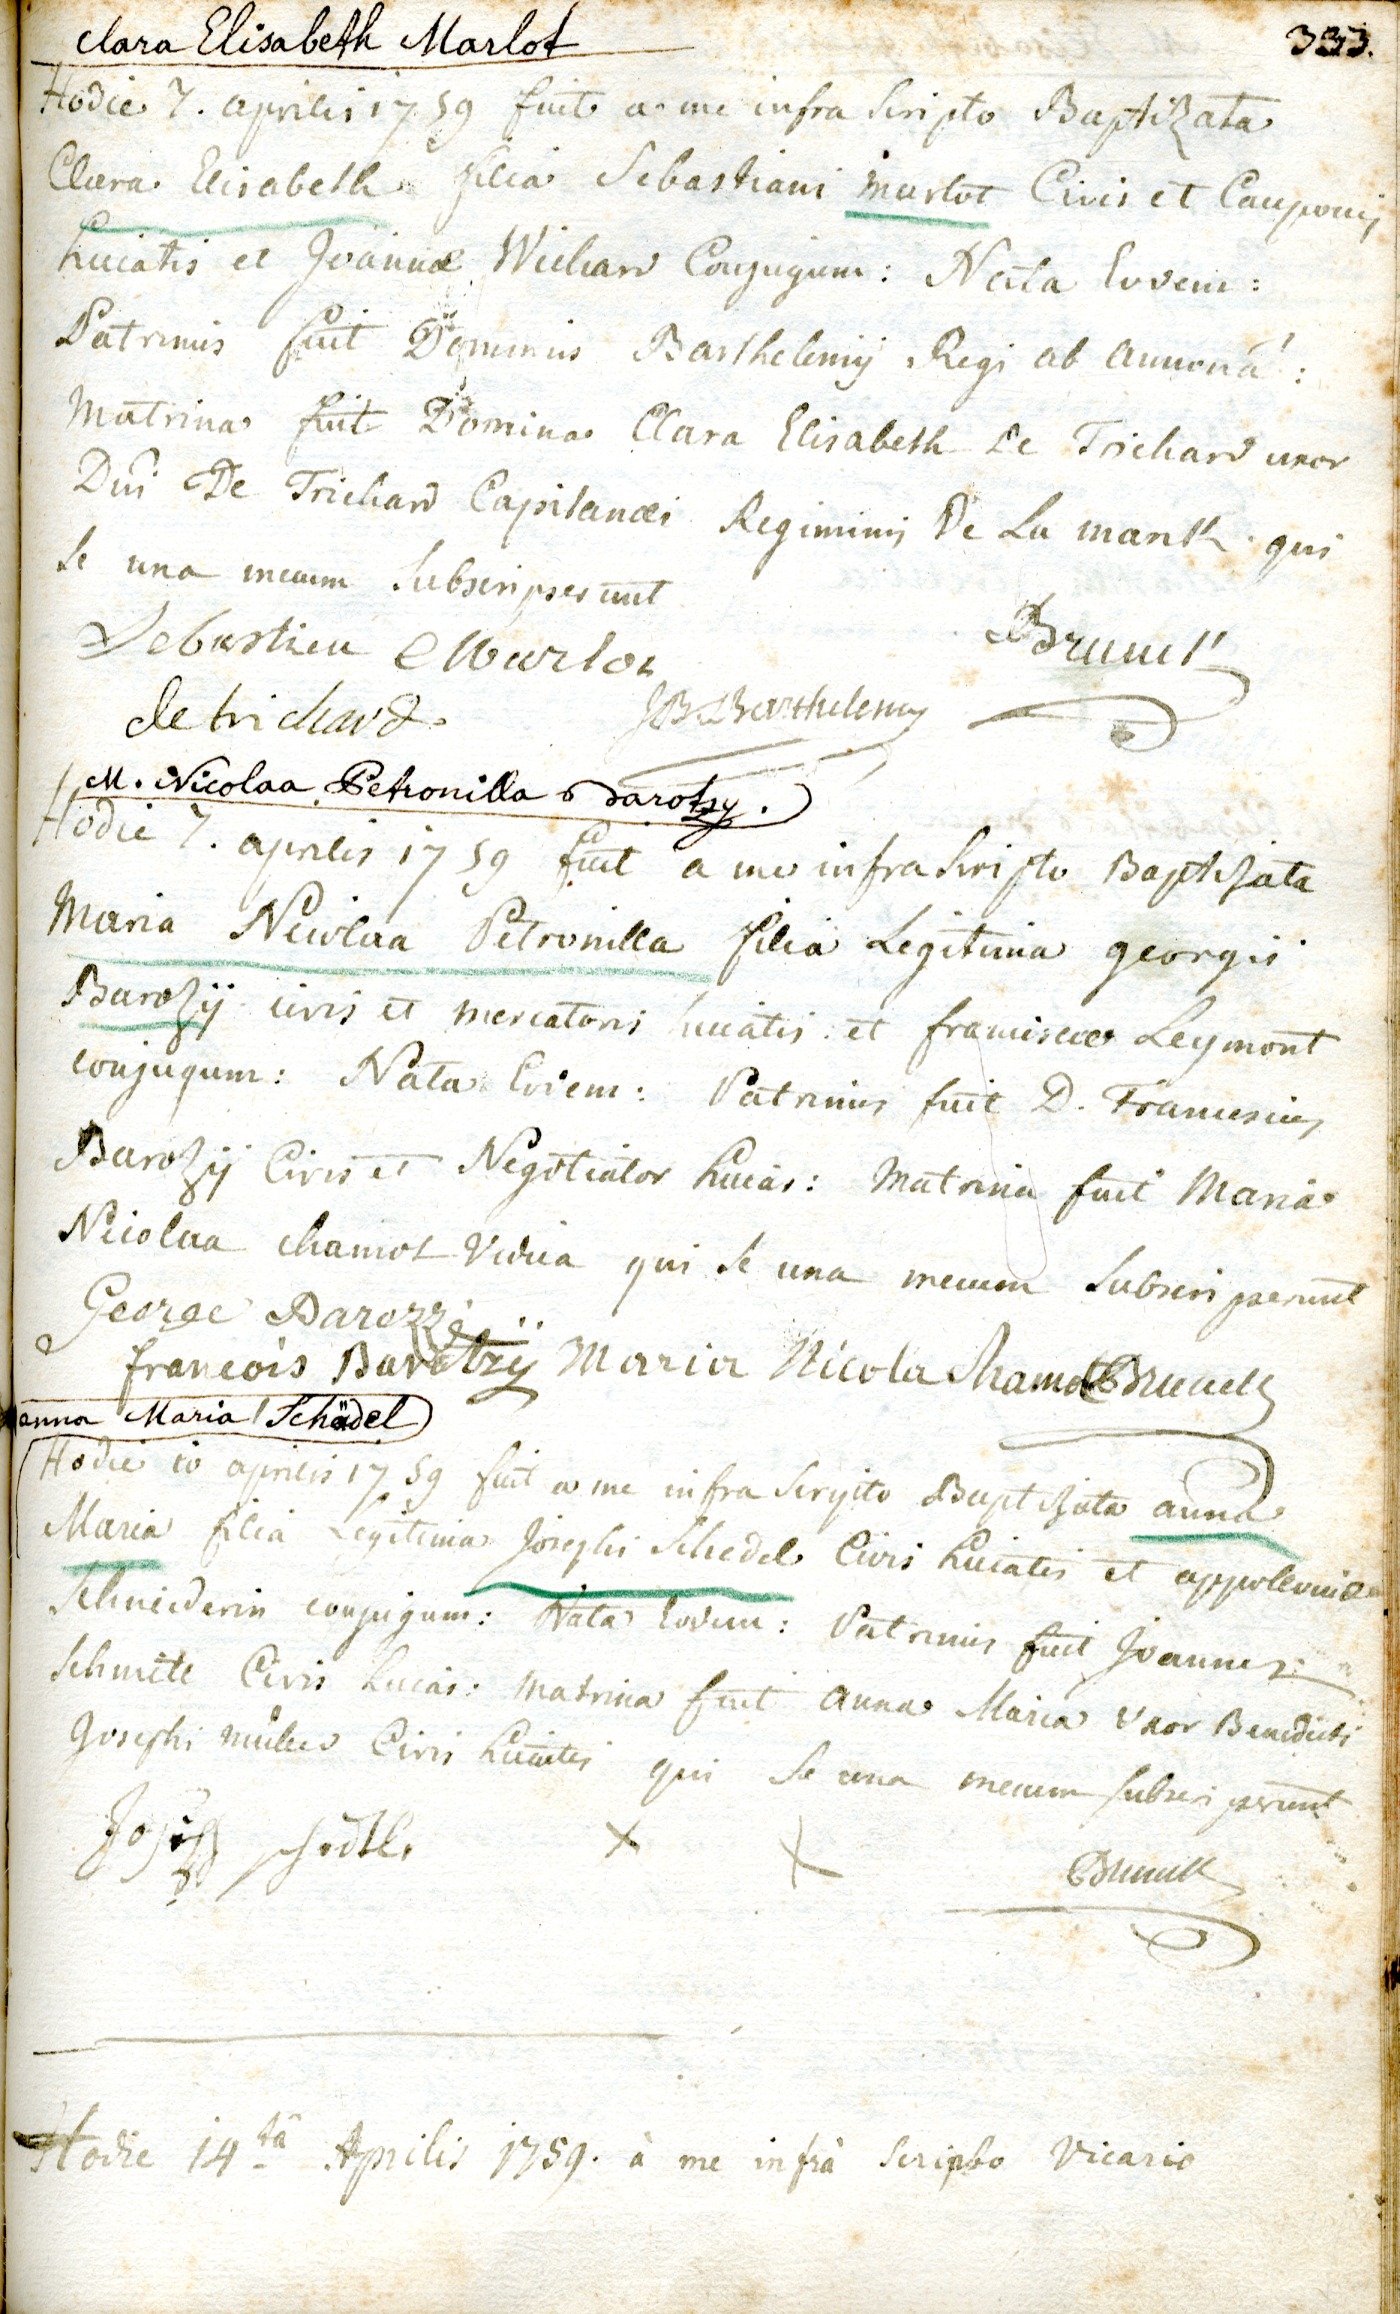 clara Elisabeth Marlot
333.
Hodie 7. aprilis 1759 fuit a me infra scripto Baptizata
Clara Elisabeth filia Sebastiani Marlot Civis et Cauponis
huiatis et Joannæ Wichard Conjugum: Nata Eodem:
Patrinus fuit Dominus Barthelemij Regi ab annonâ:
Matrina fuit Domina Clara Elisabeth De Trichard uxor
Dni De Trichard Capitanei Regiminis De La Mark qui
se una mecum subscripserunt
Sebastien Marlot
Brunck
detrichard
JB Barthelemy
M. Nicolaa Petronilla Barotzy.
Hodie 7. aprilis 1759 fuit a me infra scripto Baptizata
Maria Nicolaa Petronilla filia Legitima georgii
Barozij civis et mercatoris huiatis et franciscæ Leymont
conjugum: Nata Eodem: Patrinus fuit D. Franciscus
Barozij Civis et Negotiator huias: Matrina fuit Maria
Nicolaa chamot Vidua qui se una mecum subscripserunt
George Barozzi
francois Barotzij Maria Nicola Shamot Brunck
anna Maria Schädel
Hodie 10 aprilis 1759 fuit a me infra scripto Baptizata anna
Maria filia Legitima Josephi Schedel Civis huiatis et appoloniæ
Schneiderin conjugum: Nata Eodem: Patrinus fuit Joannes
Schmitt Civis huias: Matrina fuit anna Maria Uxor Benedicti
Josephi müller Civis huiatis qui se una mecum subscripserunt
Joseph schedl
x x
Brunck
Hodie 14tâ Aprilis 1759. à me infrà scripto Vicario